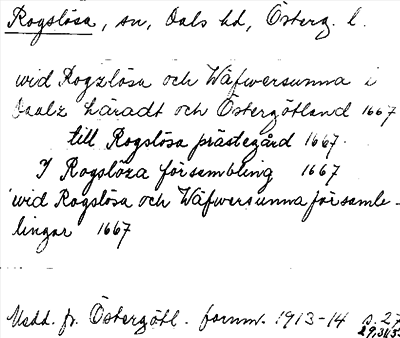 Rogslösa, sn, Dals hd, Österg. l.
wid Rogzlösa och Wäfwersunna i
Daalz häradt och Östergötland 1667
till Rogslösa prästegård 1667.
I Rogslöza försambling 1667
wid Rogslösa och Wäfwersunna församb-
lingar 1667
Medd. fr. Östergötl. fornm. 1913-14 s. 27